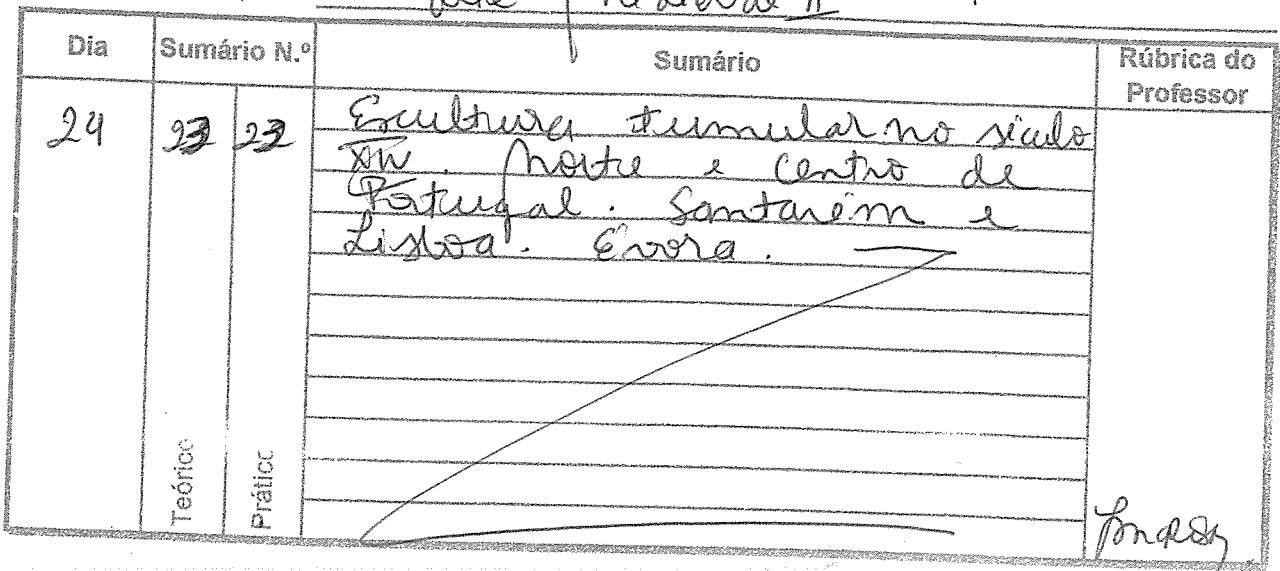 Medieval II
Dia Sumário N.º Sumário Rúbrica do Professor
24 23 22 Escultura tumular no século
XIV. Norte e Centro de
Portugal. Santarém e
Lisboa. Évora.
Teórico Prático